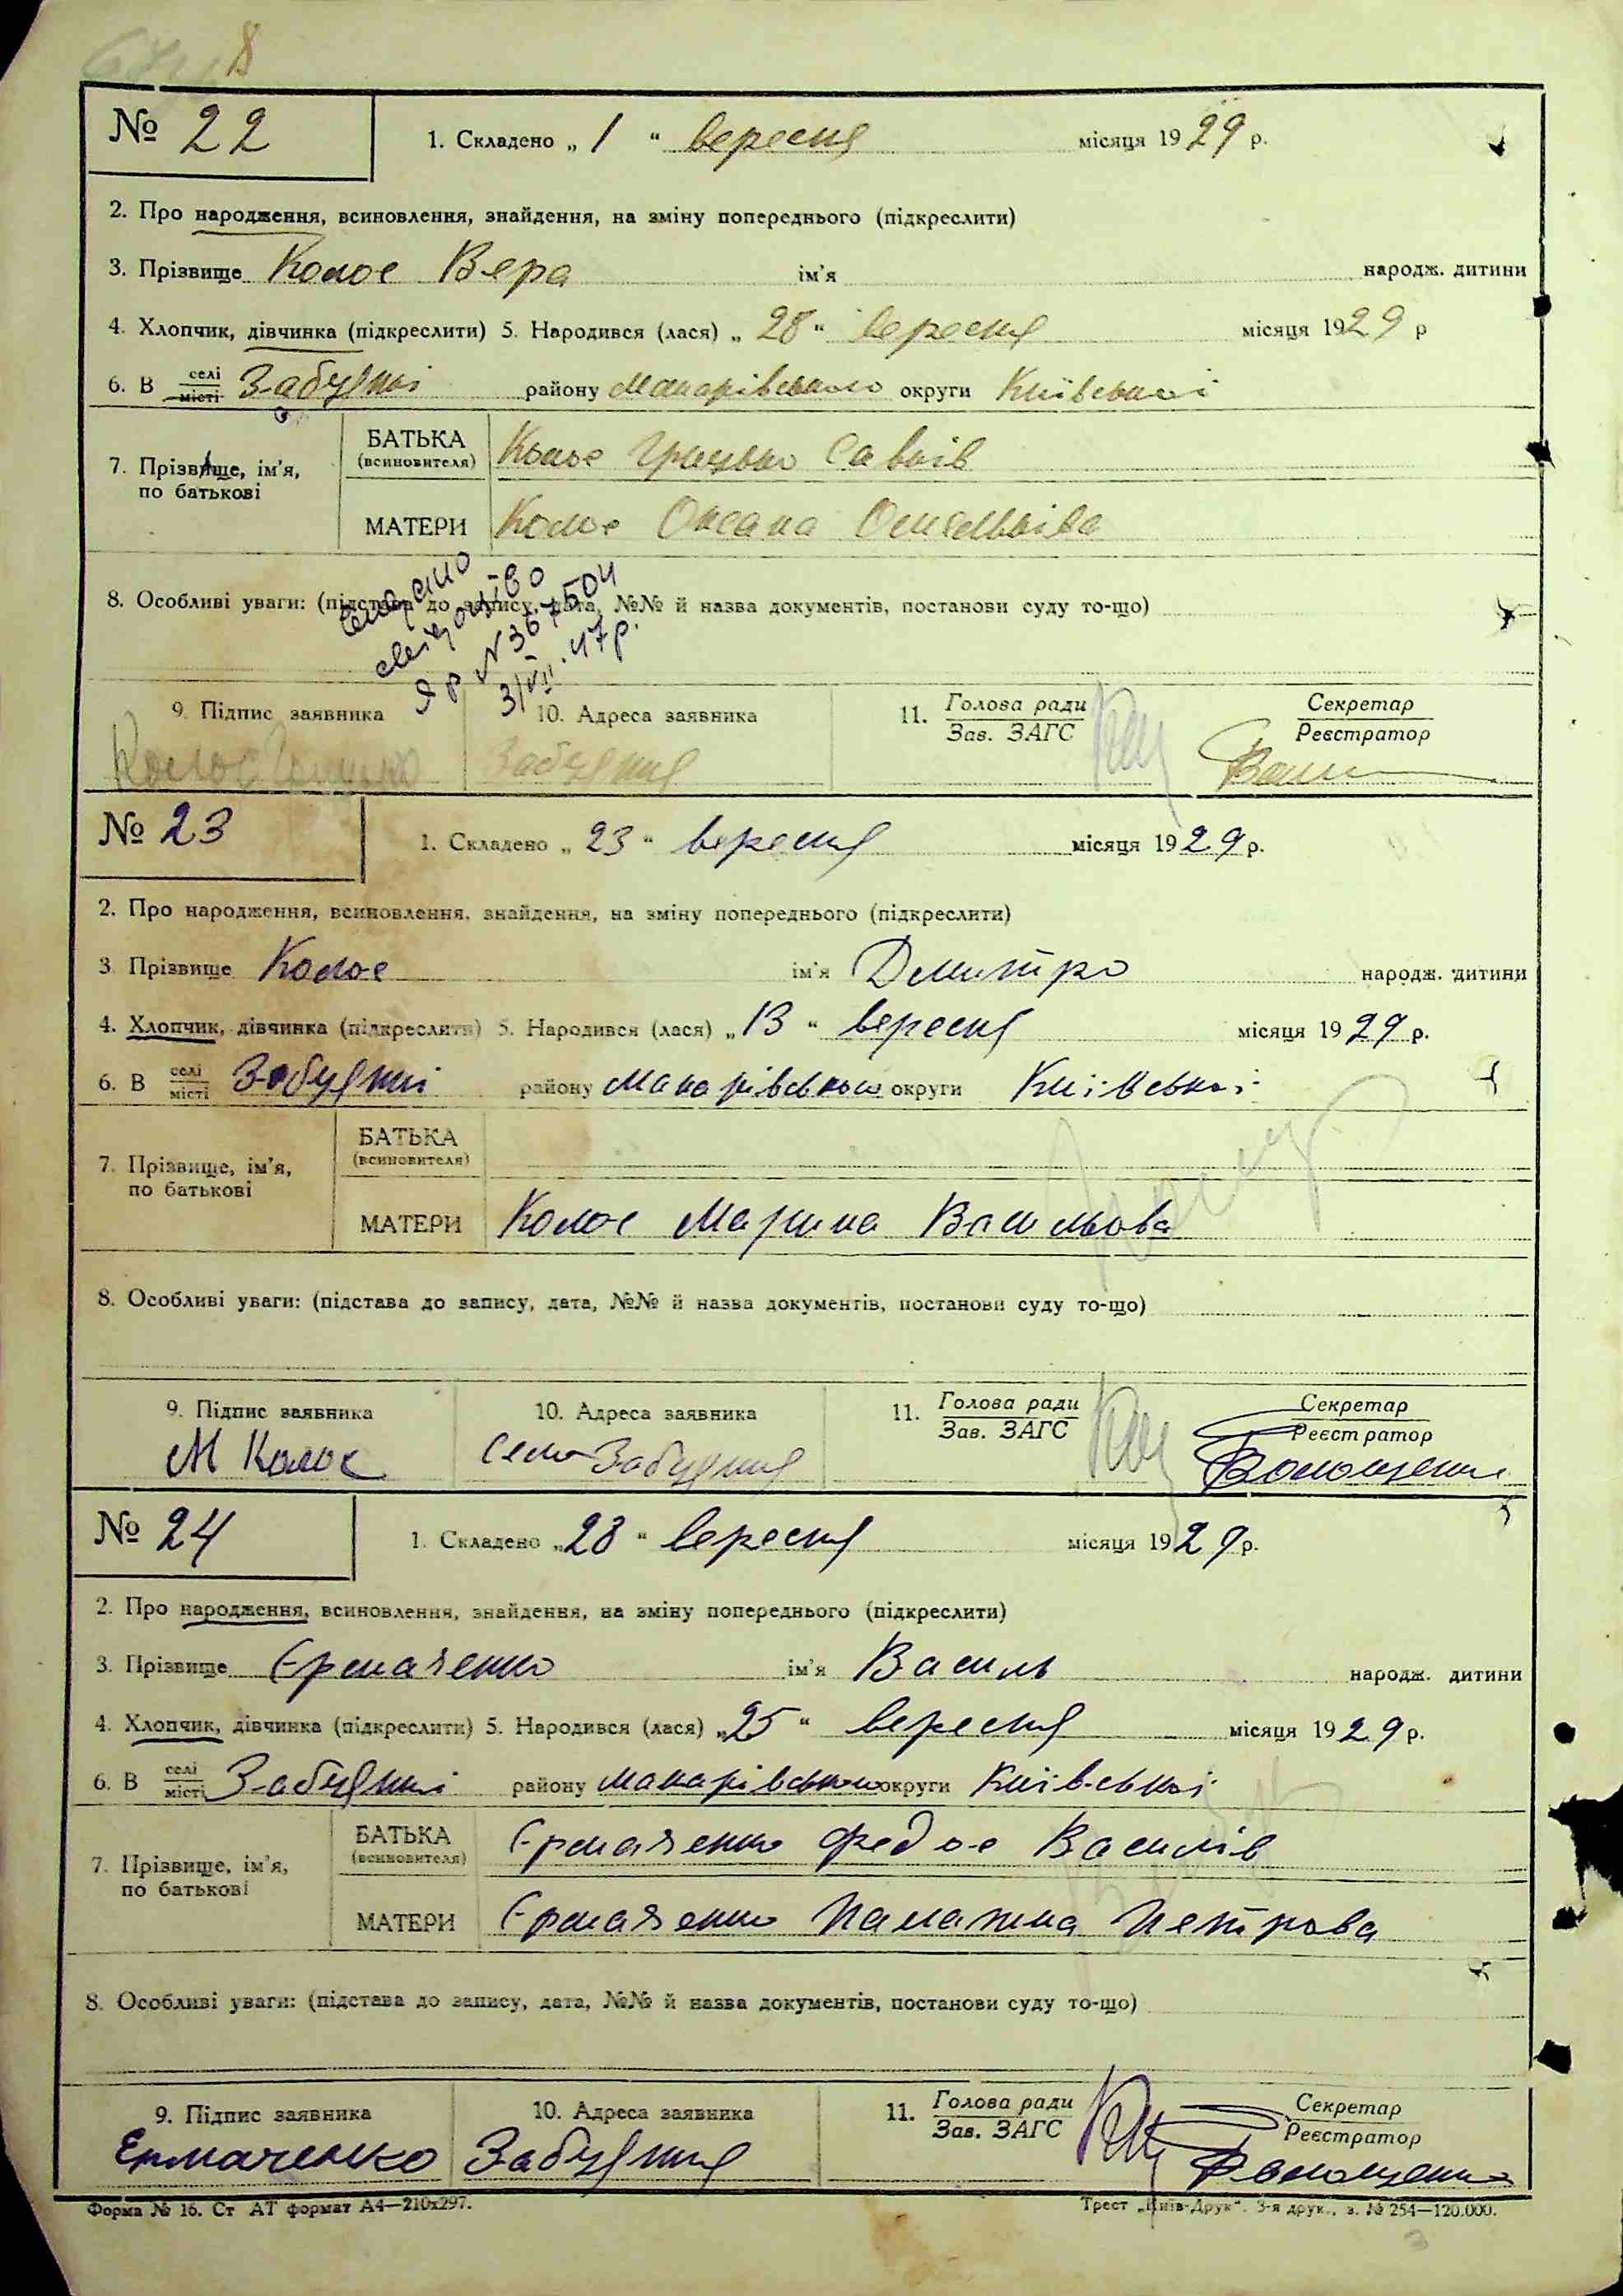 № 22
1. Складено „ 1 “ вересня місяця 1929 р.
2. Про народження, всиновлення, знайдення, на зміну попереднього (підкреслити)
3. Прізвище Колос Вера ім'я народж. дитини
4. Хлопчик, дівчинка (підкреслити) 5. Народився (лася) „ 28 “ вересня місяця 1929 р
6. В селі місті Забуянні району Макарівського округи Київської
7. Прізвище, ім'я, по батькові
БАТЬКА (всиновителя) Колос Грицько Савків
МАТЕРИ Колос Оксана Омельківа
8. Особливі уваги: (підстава до запису, дата, №№ й назва документів, постанови суду то-що)
свідоцтво
ЯР № 367504
3/VII. 47 р.
9. Підпис заявника 10. Адреса заявника 11. Голова ради Зав. ЗАГС Секретар Реєстратор
Колос Грицько Забуяння
№ 23
1. Складено „ 23 “ вересня місяця 1929 р.
2. Про народження, всиновлення, знайдення, на зміну попереднього (підкреслити)
3 Прізвище Колос ім'я Дмитро народж. дитини
4. Хлопчик, дівчинка (підкреслити) 5. Народився (лася) „ 13 “ вересня місяця 1929 р.
6. В селі місті Забуянні району Макарівського округи Київської
7. Прізвище, ім'я, по батькові
БАТЬКА (всиновителя)
МАТЕРИ Колос Марина Васильова
8. Особливі уваги: (підстава до запису, дата, №№ й назва документів, постанови суду то-що)
9. Підпис заявника 10. Адреса заявника 11. Голова ради Зав. ЗАГС Секретар Реєстратор
М Колос село Забуяння Волощенко
№ 24
1. Складено „ 28 “ вересня місяця 1929 р.
2. Про народження, всиновлення, знайдення, на зміну попереднього (підкреслити)
3. Прізвище Єрмаченко ім'я Василь народж. дитини
4. Хлопчик, дівчинка (підкреслити) 5. Народився (лася) „ 25 “ вересня місяця 1929 р.
6. В селі місті Забуянні району Макарівського округи Київської
7. Прізвище, ім'я, по батькові
БАТЬКА (всиновителя) Єрмаченко Федос Василів
МАТЕРИ Єрмаченко Палажка Петрова
8. Особливі уваги: (підстава до запису, дата, №№ й назва документів, постанови суду то-що)
9. Підпис заявника 10. Адреса заявника 11. Голова ради Зав. ЗАГС Секретар Реєстратор
Ермаченко Забуяння Волощенко
Форма № 16. Ст АТ формат А4—210х297. Трест „Київ-Друк“. 3-я друк., з. № 254—120.000.